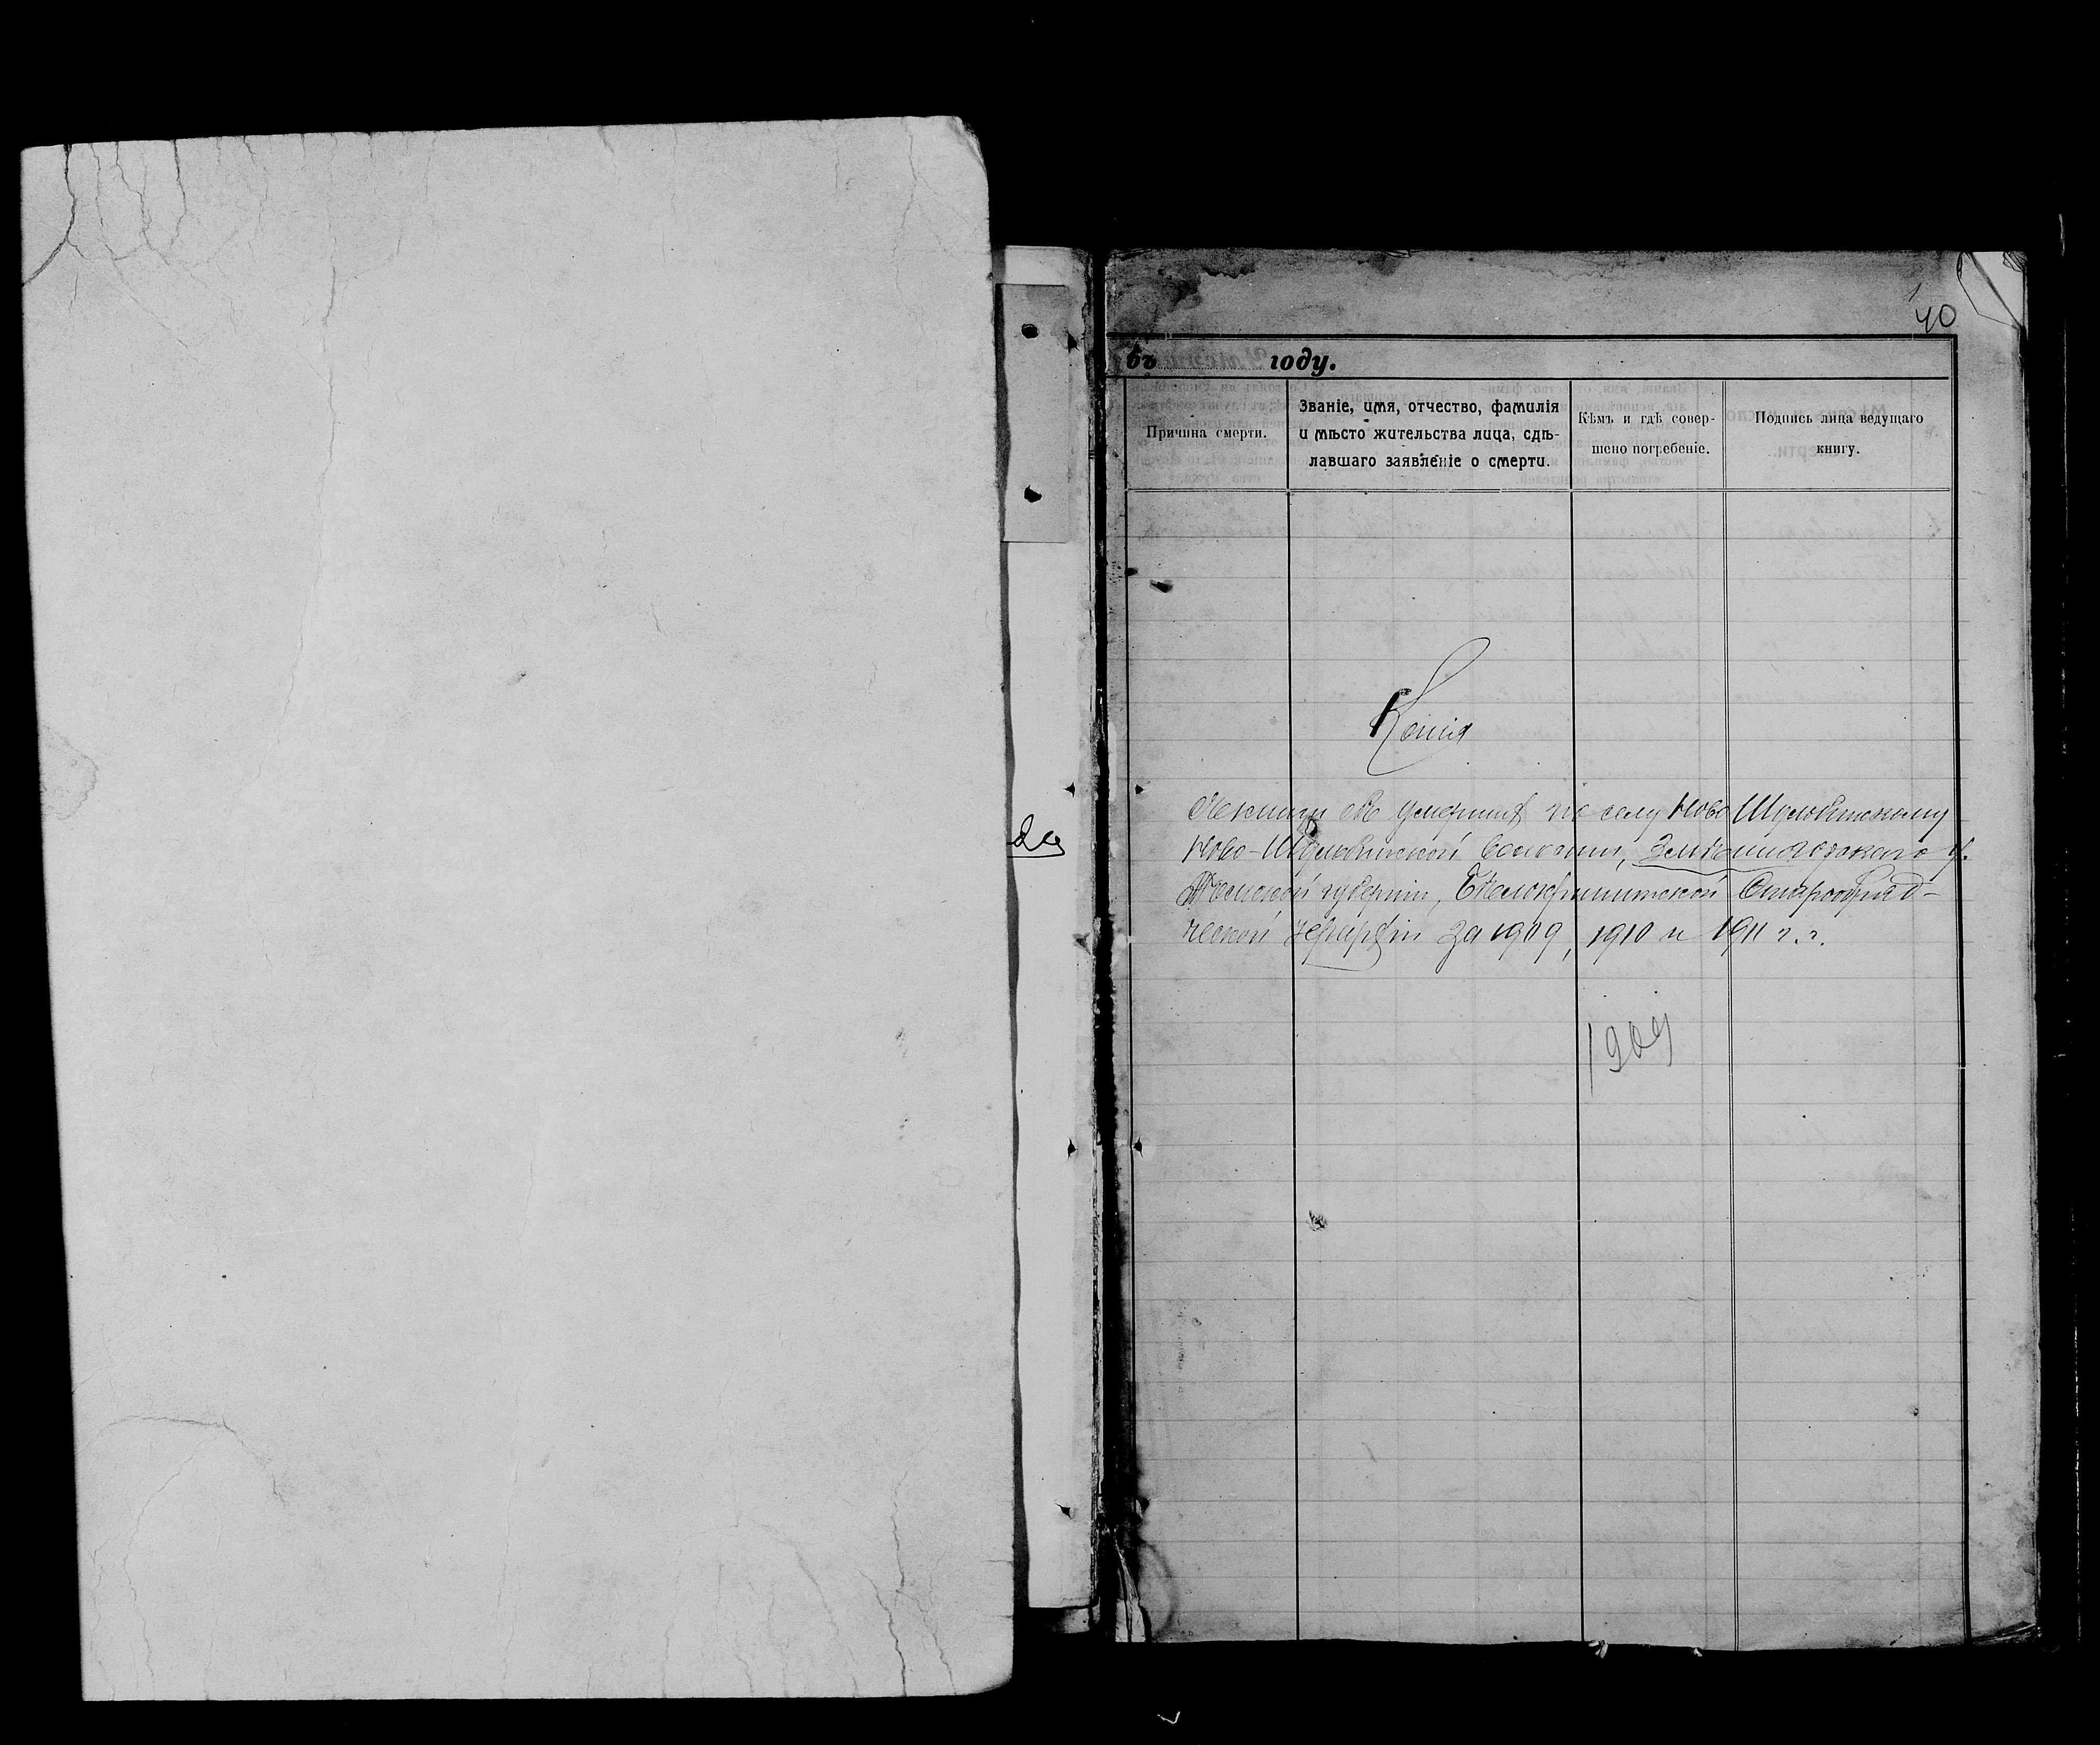 40
въ году.
Причина смерти.
Званіе, имя, отчество, фамилія
и мѣсто жительства лица, сдѣ-
лавшаго заявленіе о смерти.
Кѣмъ и гдѣ совер-
шено погребеніе.
Подпись лица ведущаго
книгу.
Копія
умершихъ по селу Ново
Ново- волости, Змѣиногорскаго у.
Томской губерніи, Бѣлокриницкой Старообряд-
ческой іерархіи за 1909, 1910 и 1911 г.г.
1909